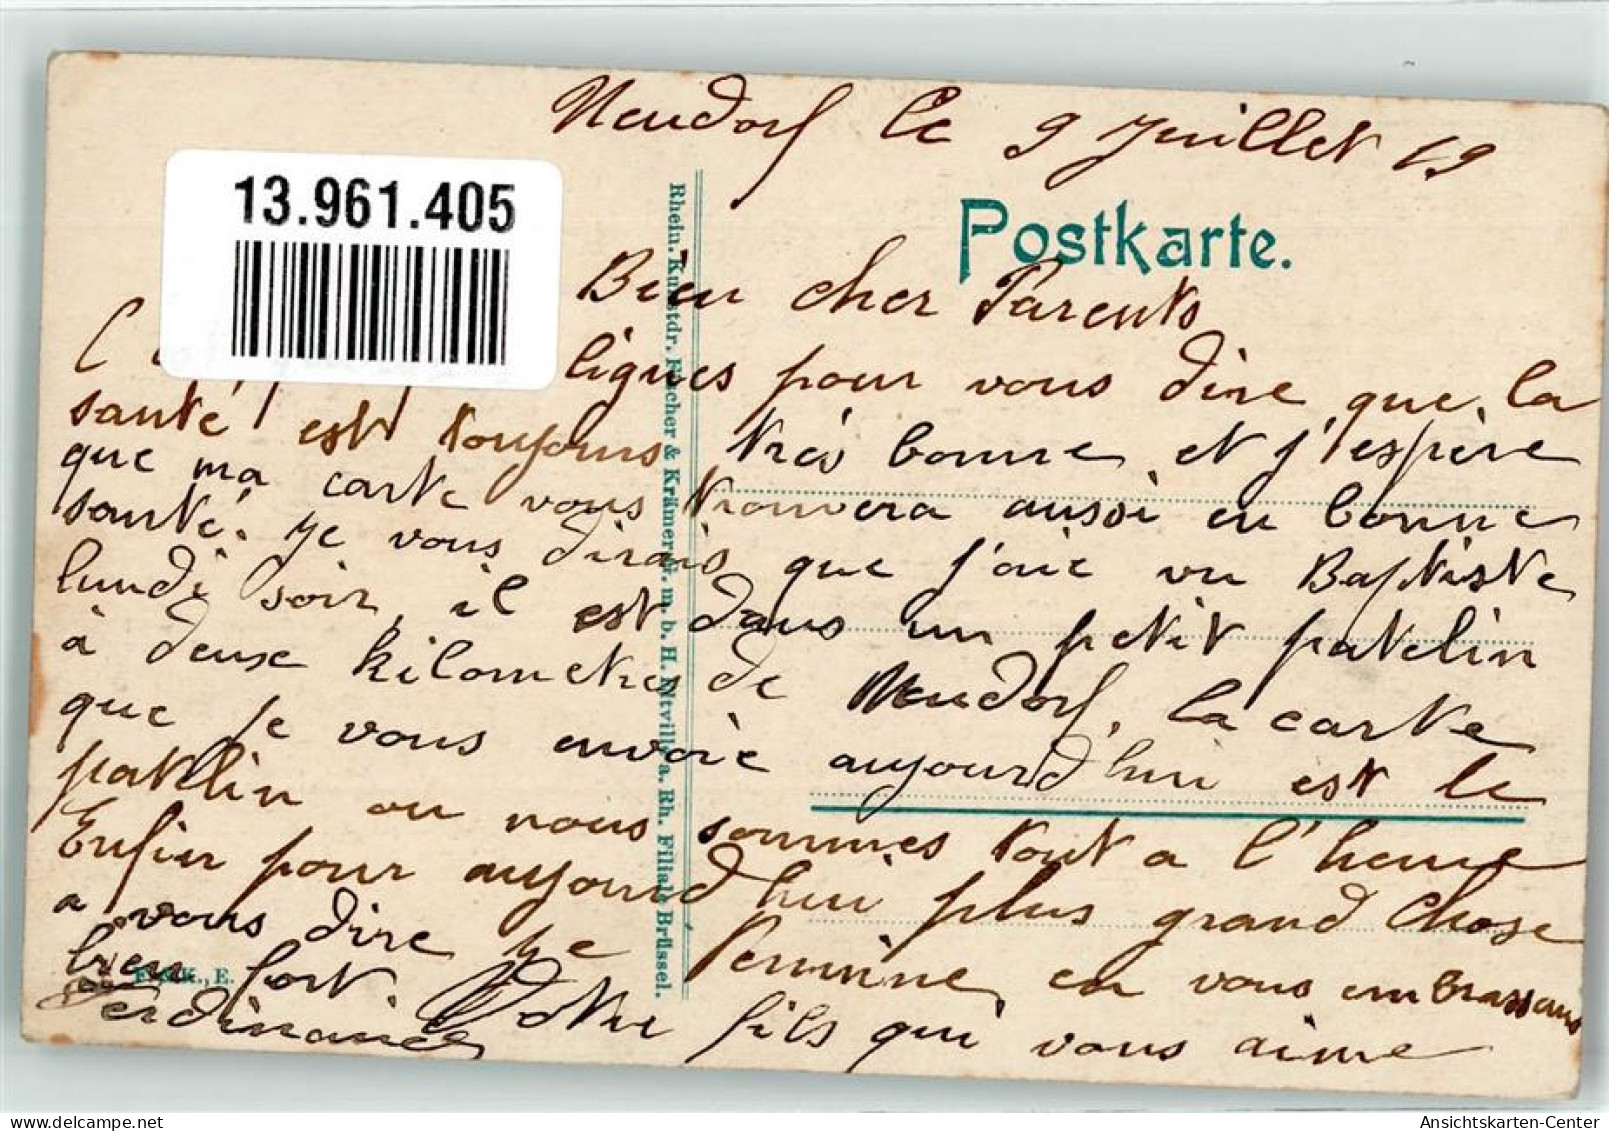 Neudorf le 9 Juillet 19
13.961.405
Postkarte.
Bien cher Parents
lignes pour vous dire que la
santé est toujours très bonne et j'espère
que ma carte vous trouvera aussi en bonne
santé. Je vous dirais que j'aie vu Baptiste
lundi soir, il est dans un petit patelin
à deux kilometres de Neudorf, la carte
que je vous envoie aujourd'hui est le
patelin ou nous sommes tout a l'heure
Enfin pour aujourd'hui plus grand chose
a vous dire je termine en vous embrassant
bien fort. Votre fils qui vous aime
Ferdinand
F. & K., E.
Rhein. Kunstdr. Fischer & Krämer G. m. b. H. Eltville a. Rh. Filiale Brüssel.
Ansichtskarten-Center